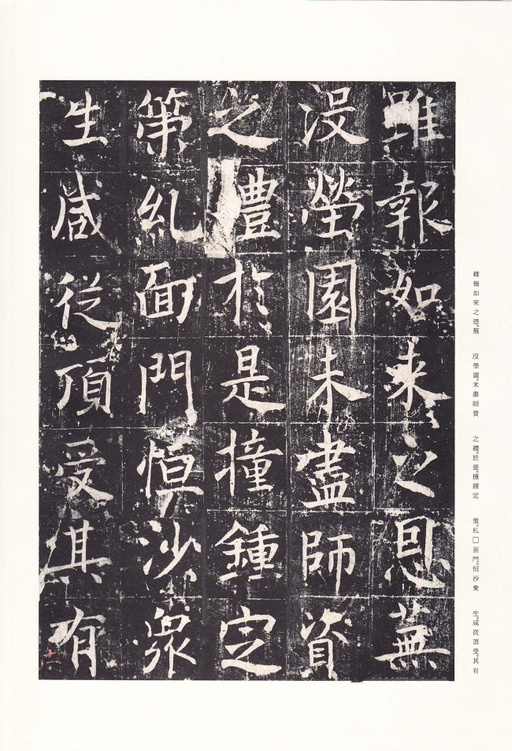 雖報如来之恩蕪
没塋園未盡師資
之禮於是撞鍾定
第糺面門恒沙衆
生咸從頂受其有
雖報如來之恩、蕪 沒塋園、未盡師資 之禮、於是撞鍾定 第糺□面門、恒沙衆 生、咸從頂受、其有